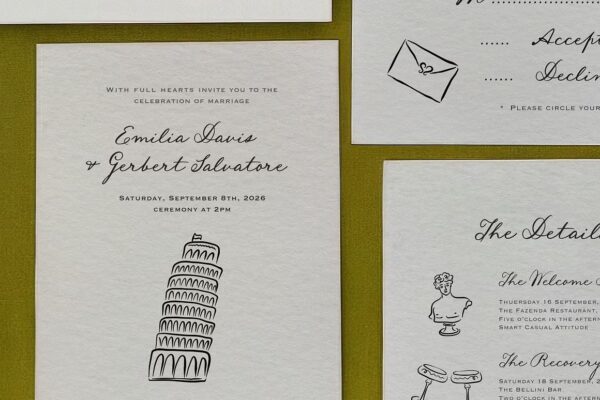 WITH FULL HEARTS INVITE YOU TO THE
CELEBRATION OF MARRIAGE
Emilia Davis
& Gerbert Salvatore
SATURDAY, SEPTEMBER 8TH, 2026
CEREMONY AT 2PM
M
Accept
Declin
* PLEASE CIRCLE YOUR
The Detail
The Welcome
THUERSDAY 16 SEPTEMBER,
THE FAZENDA RESTAURANT,
FIVE O'CLOCK IN THE AFTERN
SMART CASUAL ATTITUDE
The Recovery
SATURDAY 18 SEPTEMBER, 2
THE BELLINI BAR
TWO O'CLOCK IN THE AFTERN